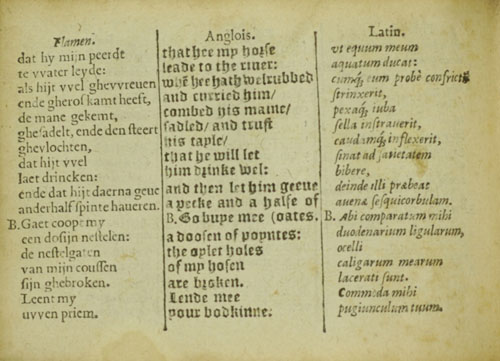 Flamen.
dat hy mijn peerdt
te vvater leyde:
als hijt vvel ghevvreuen
ende gheroskamt heeft,
de mane gekemt,
ghesadelt, ende den steert
ghevlochten,
dat hijt vvel
laet drincken:
ende dat hijt daerna geue
anderhalf spinte haueren.
B. Gaet coope my
een dosijn nestelen:
de nestelgaten
van mijn coussen
sijn ghebroken.
Leent my
uvven priem.
Anglois.
that hee my horse
leade to the riuer:
whē hee hath wel rubbed
and curried him/
combed his maine/
sadled/ and trust
his taple/
that he will let
him drinke wel:
and then let him geeue
a pecke and a halfe of
B. Go buye mee (oates.
a doosen of poyntes:
the oylet holes
of my hosen
are broken.
Lende mee
your bodkinne.
Latin.
vt equum meum
aquatum ducat:
cumq́; eum probè confrict⁹
strinxerit,
pexaq́; iuba
sella instrauerit,
caudamq́; inflexerit,
sinat ad satietatem
bibere,
deinde illi præbeat
auenæ sesquicorbulam.
B. Abi comparatum mihi
duodenarium ligularum,
ocelli
caligarum mearum
lacerati sunt.
Commoda mihi
pugiunculum tuum.